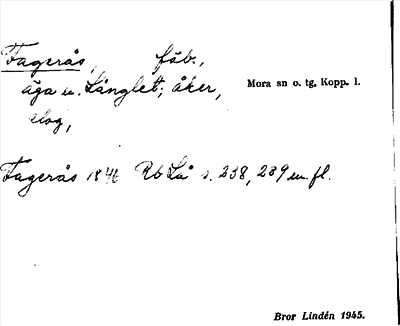 Fagerås, fäb.,
äga u. Långlet; åker,
slog,
Mora sn o. tg, Kopp. l.
Fagerås 1846 Rb Lå s. 238, 239 m. fl.
Bror Lindén 1945.